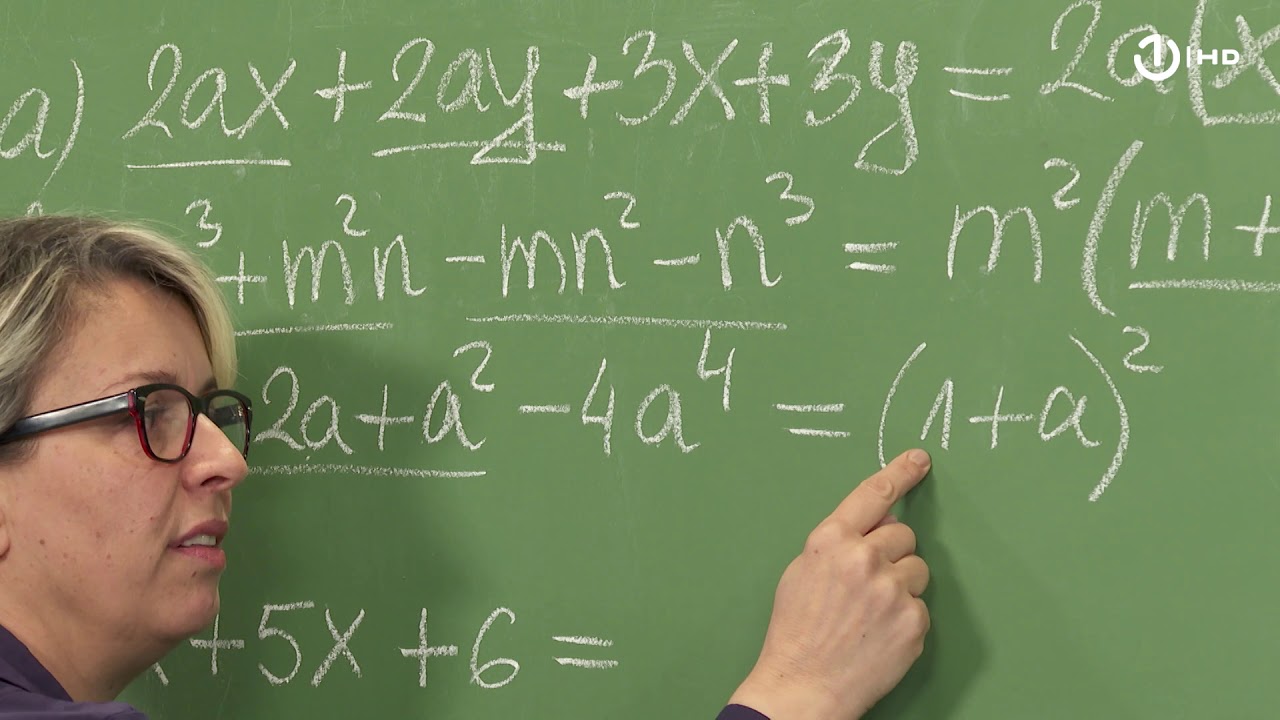 a) 2ax + 2ay + 3x + 3y = 2a(x
³ + m²n - mn² - n³ = m²(m +
2a + a² - 4a⁴ = (1 + a)²
+ 5x + 6 =
1 HD